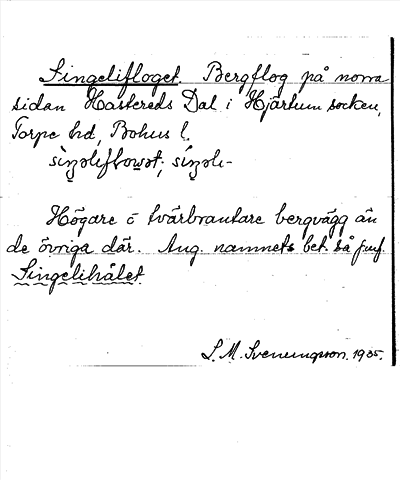 Singelifloget. Bergflog på norra
sidan Hastereds Dal i Hjärtum socken,
Torpe hd, Bohus l.
Högare o tvärbrantare bergvägg än
de övriga där. Ang. namnets bet. så jmf.
Singelihålet
S. M. Svenungsson. 1935.